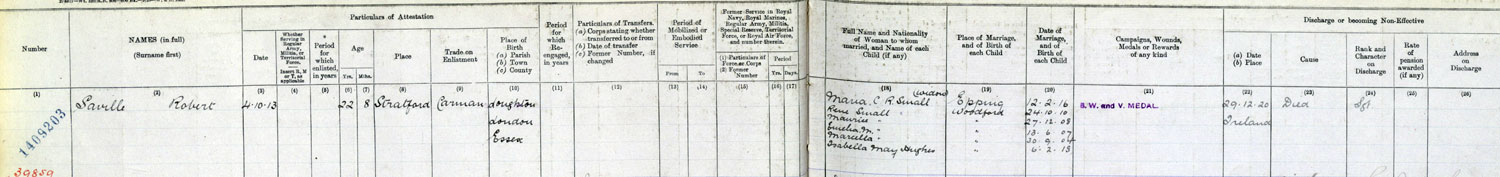 Particulars of Attestation
Number
NAMES (in full)
(Surname first)
Date
Whether Serving in Regular Army, Militia, or Territorial Force.
Insert R, M or T, as applicable
Period for which enlisted, in years
Age
Yrs. Mths.
Place
Trade on Enlistment
Place of Birth
(a) Parish
(b) Town
(c) County
Period for which Re-engaged, in years
Particulars of Transfers.
(a) Corps stating whether transferred to or from
(b) Date of transfer
(c) Former Number, if changed
Period of Mobilized or Embodied Service
From To
Former Service in Royal Navy, Royal Marines, Regular Army, Militia, Special Reserve, Territorial Force, or Royal Air Force, and number therein.
(1) Particulars of Force or Corps
(2) Former Number
Period
Yrs. Days.
Full Name and Nationality of Woman to whom married, and Name of each Child (if any)
Place of Marriage, and of Birth of each Child
Date of Marriage, and of Birth of each Child
Campaigns, Wounds, Medals or Rewards of any kind
Discharge or becoming Non-Effective
(a) Date
(b) Place
Cause
Rank and Character on Discharge
Rate of pension awarded (if any)
Address on Discharge
(1) (2) (3) (4) (5) (6) (7) (8) (9) (10) (11) (12) (13) (14) (15) (16) (17) (18) (19) (20) (21) (22) (23) (24) (25) (26)
1409203
Saville Robert 4.10.13 22 8 Stratford Carman Loughton
London
Essex
Maria C. R. Small (widow) Epping 12.2.16
Rene Small " Woodford 24.10.10
Maurice " " 27.12.08
Emelia M. " " 13.6.07
Marcella " " 30.9.04
Isabella May Hughes " 6.2.13
B. W. and V. MEDAL.
29.12.20 Died
Ireland
39859